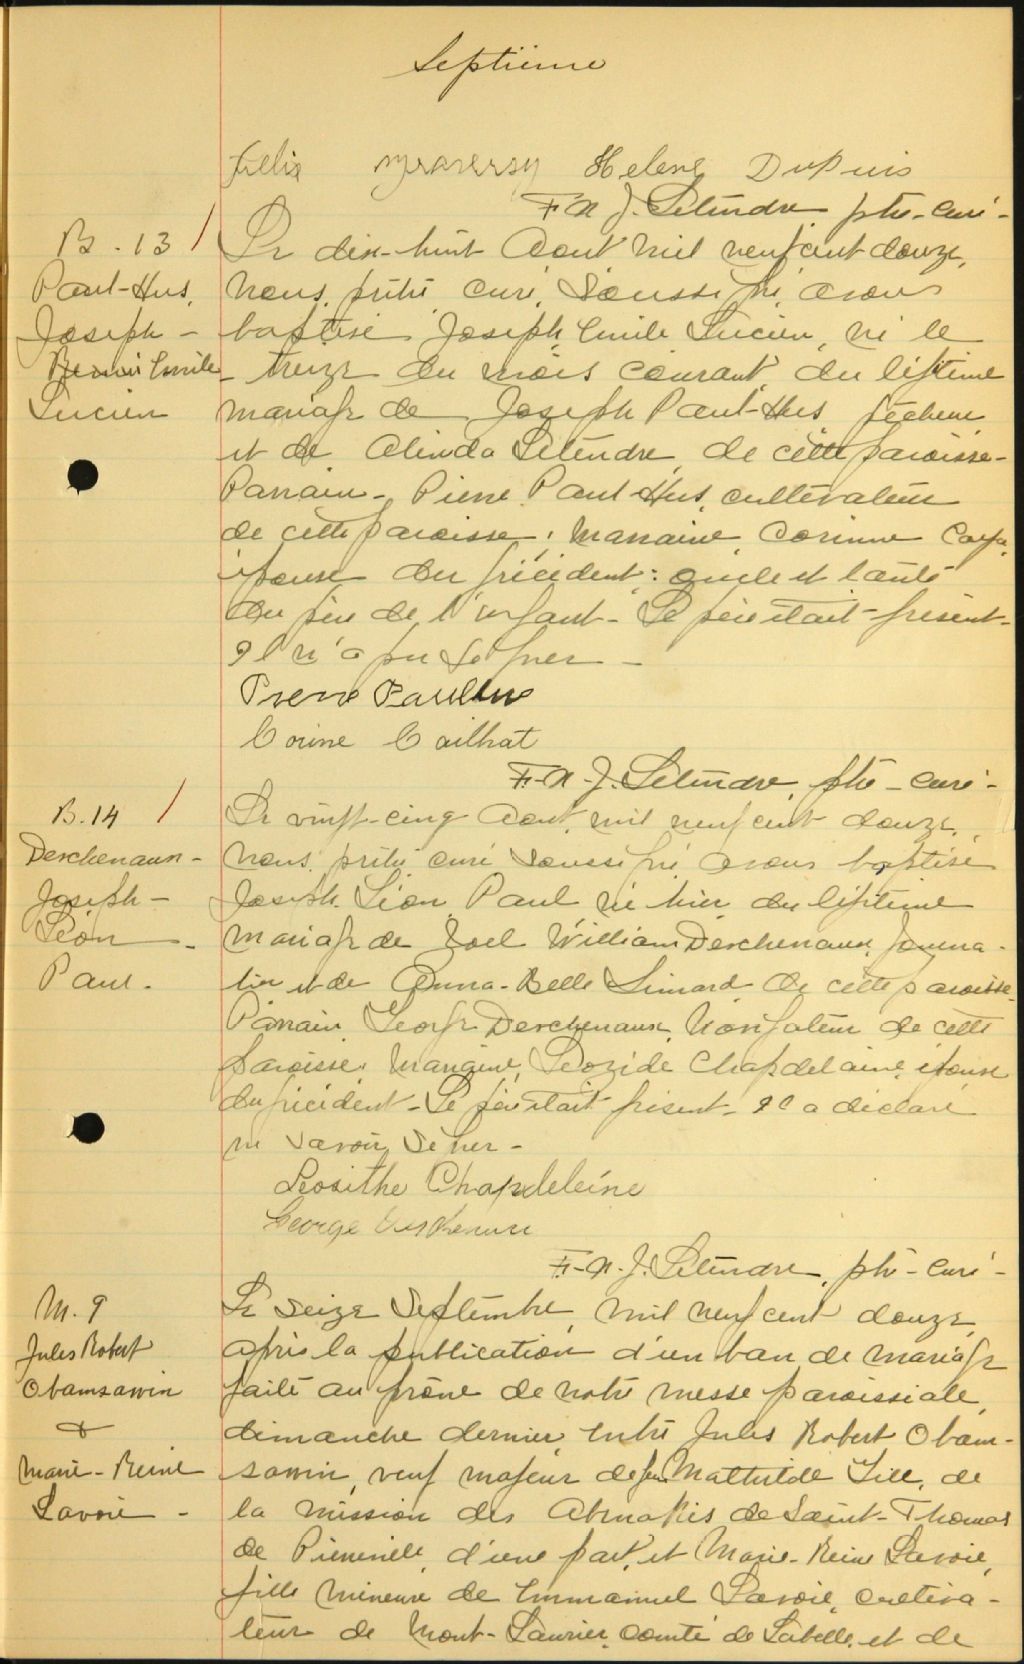 Septième
Felix Hélène Dupuis
F.X.J. Letendre, ptre-curé-
B. 13
Paul-Hus,
Joseph -
Emile
Lucien
Le dix-huit Aout mil neuf cent douze,
nous, prêtre curé, soussigné, avons
baptisé Joseph Emile Lucien, né le
treize du mois courant, du légitime
mariage de Joseph Paul-Hus pêcheur
et de Alinda Letendre, de cette paroisse-
Parrain - Pierre Paul-Hus, cultivateur
de cette paroisse; marraine, Corinne
épouse du précédent: oncle et tante
du père de l'enfant - Le père était présent-
Il n'a pu signer -
Pierre Paulhus
Corine Cailhat
F.-X.-J. Letendre, ptre-curé-
B. 14
Deschenaux -
Joseph -
Léon -
Paul.
Le vingt-cinq Aout, mil neuf cent douze,
nous, prêtre curé soussigné avons baptisé
Joseph Léon Paul né hier du légitime
mariage de Joel William Deschenaux, journa-
lier et de Anna-Belle Simard de cette paroisse-
Parrain, George Deschenaux, navigateur de cette
paroisse; Marraine, Léozide Chapdelaine, épouse
du précédent - Le père était présent - Il a déclaré
ne savoir signer -
Leosithe Chapdeleine
George
F.-X.-J. Letendre, ptre-curé-
M. 9
Jules Robert
Obamsawin
&
Marie-Reine
Savoie -
Le seize Septembre, mil neuf cent douze,
après la publication d'un ban de mariage
faite au prône de notre messe paroissiale,
dimanche dernier, entre Jules Robert Obam-
sawin, veuf majeur de feu Mathilde Gill, de
la mission des Abnakis de Saint-Thomas
de Pierreville, d'une part, et Marie-Reine Savoie,
fille mineure de Emmanuel Savoie, cultiva-
teur de Mont-Laurier, comté de Labelle, et de